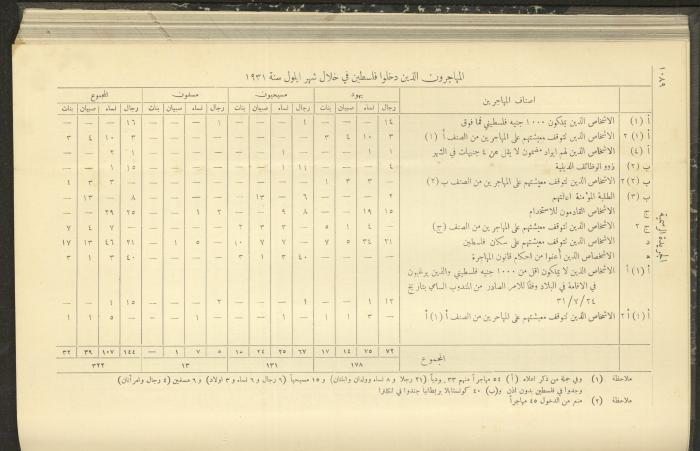 ١٠٨٩
الجريدة الرسمية
المهاجرون الذين دخلوا فلسطين في خلال شهر ايلول سنة ١٩٣١
اصناف المهاجرين | يهود | مسيحيون | مسلمون | المجموع
رجال | نساء | صبيان | بنات | رجال | نساء | صبيان | بنات | رجال | نساء | صبيان | بنات | رجال | نساء | صبيان | بنات
أ (١) الاشخاص الذين يملكون ١٠٠٠ جنيه فلسطيني فما فوق | ١٤ | — | — | — | ١ | — | — | — | ١ | — | — | — | ١٦ | — | — | —
أ (١) ٢ الاشخاص الذين تتوقف معيشتهم على المهاجرين من الصنف أ (١) | ٣ | ١٠ | ٤ | ٣ | — | — | — | — | — | — | — | — | ٣ | ١٠ | ٤ | ٣
أ (٤) الاشخاص الذين لهم ايراد مضمون لا يقل عن ٤ جنيهات في الشهر | ١ | ١ | — | — | — | ١ | — | — | — | — | — | — | ١ | ٢ | — | —
ب (٢) ذوو الوظائف الدينية | ٤ | — | — | — | ١١ | ١ | — | — | — | — | — | — | ١٥ | ١ | — | —
ب (٢) ٢ الاشخاص الذين تتوقف معيشتهم على المهاجرين من الصنف ب (٢) | — | ٣ | ٣ | ١ | — | — | — | — | — | — | — | — | — | ٣ | ٣ | ١
ب (٣) الطلبة المؤمنة اعالتهم | ٢ | — | — | — | ٦ | — | ١٣ | — | — | — | — | — | ٨ | — | ١٣ | —
ج الاشخاص القادمون للاستخدام | ١٥ | ١٩ | — | — | ٨ | ٩ | — | — | ٢ | ١ | — | — | ٢٥ | ٢٩ | — | —
ج ٢ الاشخاص الذين تتوقف معيشتهم على المهاجرين من الصنف (ج) | — | ٤ | — | ٥ | — | ٣ | ٣ | ٢ | — | — | — | — | — | ٧ | ٤ | ٧
د الاشخاص الذين تتوقف معيشتهم على سكان فلسطين | ٢١ | ٣٤ | ٥ | ٧ | — | ٧ | ٧ | ١٠ | — | ٥ | ١ | — | ٢١ | ٤٦ | ١٣ | ١٧
ه الاشخاص الذين أعفوا من احكام قانون المهاجرة | — | — | — | — | ٤٠ | ٣ | ١ | ٣ | — | — | — | — | ٤٠ | ٣ | ١ | ٣
أ (١) أ الاشخاص الذين لا يملكون اقل من ١٠٠٠ جنيه فلسطيني والذين يرغبون
في الاقامة في البلاد وفقاً للامر الصادر من المندوب السامي بتاريخ
٣١/٧/٢٤ | ١٢ | ١ | — | — | ١ | — | — | — | ٢ | — | — | — | ١٥ | ١ | — | —
أ (١) أ ٢ الاشخاص الذين تتوقف معيشتهم على المهاجرين من الصنف أ (١) أ | — | ٣ | ١ | ١ | — | ١ | — | — | — | ١ | — | — | — | ٥ | ١ | ١
المجموع | ٧٢ | ٧٥ | ١٤ | ١٧ | ٦٧ | ٢٥ | ٢٤ | ١٥ | ٥ | ٧ | ١ | — | ١٤٤ | ١٠٧ | ٣٩ | ٣٢
١٧٨ | ١٣١ | ١٣ | ٣٢٢
ملاحظة (١) وفي جملة من ذكر اعلاه (أ) ٥٤ مهاجراً منهم ٣٣ يهودياً (٢١ رجلا و ٨ نساء وولدان وابنتان) و ١٥ مسيحياً (٦ رجال و ٦ نساء و ٣ اولاد) و ٦ مسلمين (٤ رجال وامرأتان)
وجدوا في فلسطين بدون اذن و(ب) ٤٠ كونستابلا بريطانيا جندوا في انكلترا
ملاحظة (٢) منع من الدخول ٤٥ مهاجراً